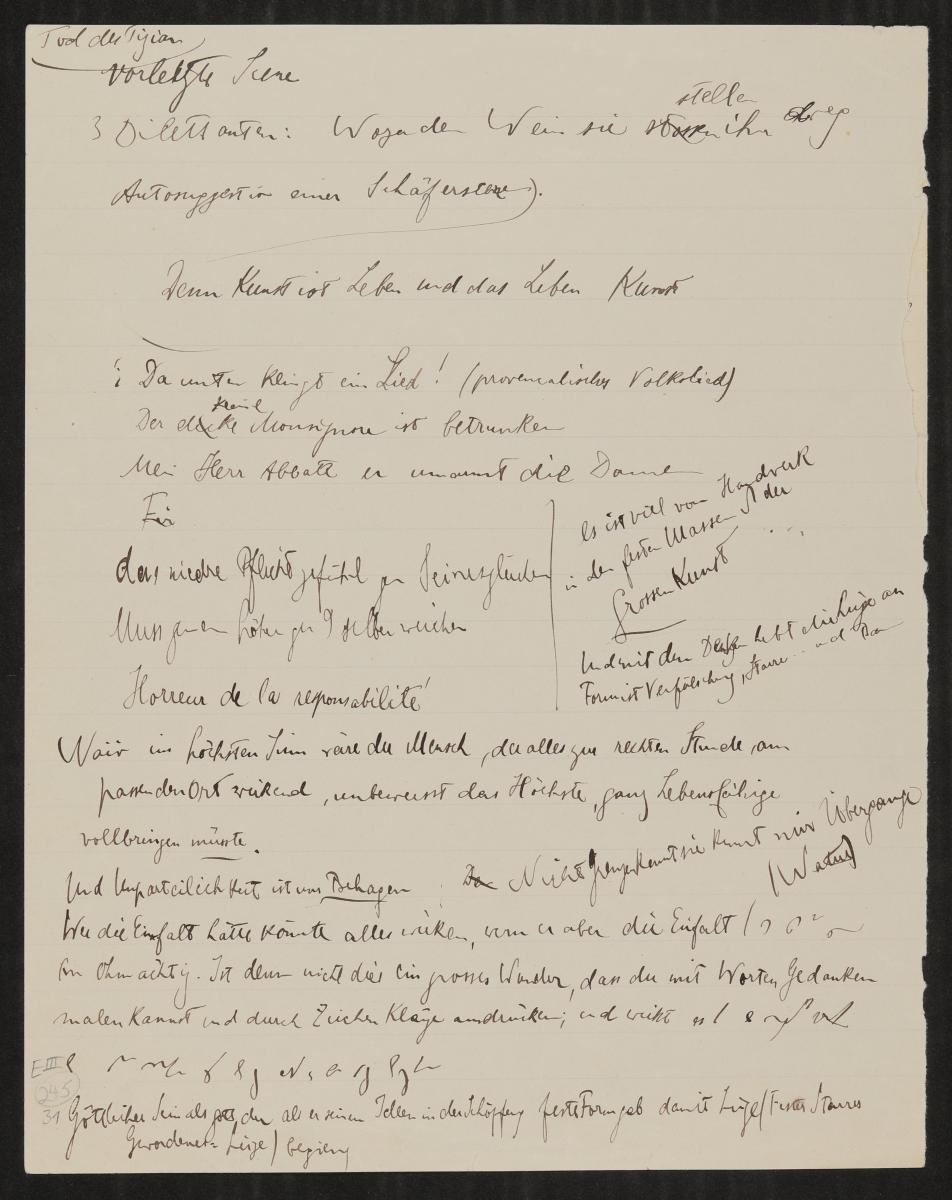 Tod des Tizian
vorletzte Scene
stellen
3 Dilettanten: Wozu den Wein sie ihn weg
Autosuggestion einer Schäferscene).
Denn Kunst ist Leben und das Leben Kunst
Da unten klingt ein Lied! (provencalisches Volkslied)
Der dicke Monsignore ist betrunken
Mein Herr Abbate er umarmt die Damen
Für
das niedre Pflichtgefühl zu Seinesgleichen
Muss einem höhern zu selber weichen
Horreur de la responsabilité
es ist viel vom Handwerk
in den festen Massen der
Grossen Kunst
Und mit dem Denken hebt die Lüge an
Form ist Verfälschung, Starre ... und
Naiv im höchsten Sinn wäre der Mensch, der alles zur rechten Stunde, am
passenden Ort wirkend, unbewusst das Höchste, ganz Lebensfähige
vollbringen müsste.
Nicht Grenzen kennt sie kennt nur Übergänge
(Natur)
Und Unparteilichkeit ist uns Behagen
Wer die Einfalt hätte könnte alles wirken, wenn er aber die Einfalt
ohnmächtig. Ist denn nicht dies ein grosses Wunder, dass du mit Worten Gedanken
malen kannst und durch Zeichen Klänge ausdrücken; und wirkt es
E III
245
31 Göttliches Sein als Gott, der als er seinen Ideen in der Schöpfung feste Form gab damit Lüge (Festes Starres
Gewordenes = Lüge) beging